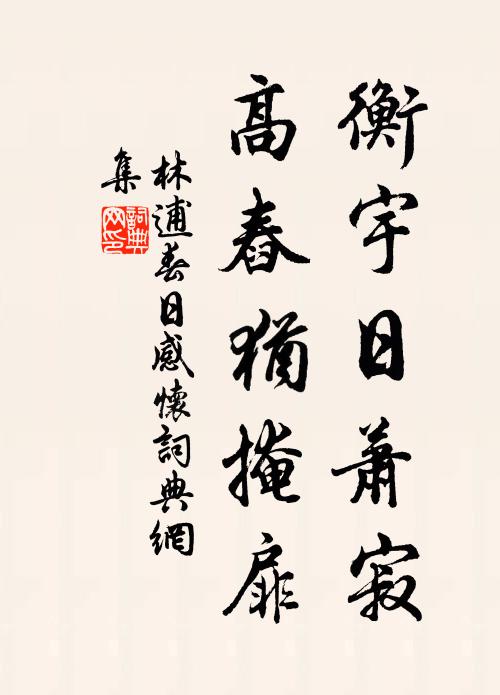 衡宇日蕭寂
高舂猶掩扉
林逋春日感懷詞典網
集
詞典
网印